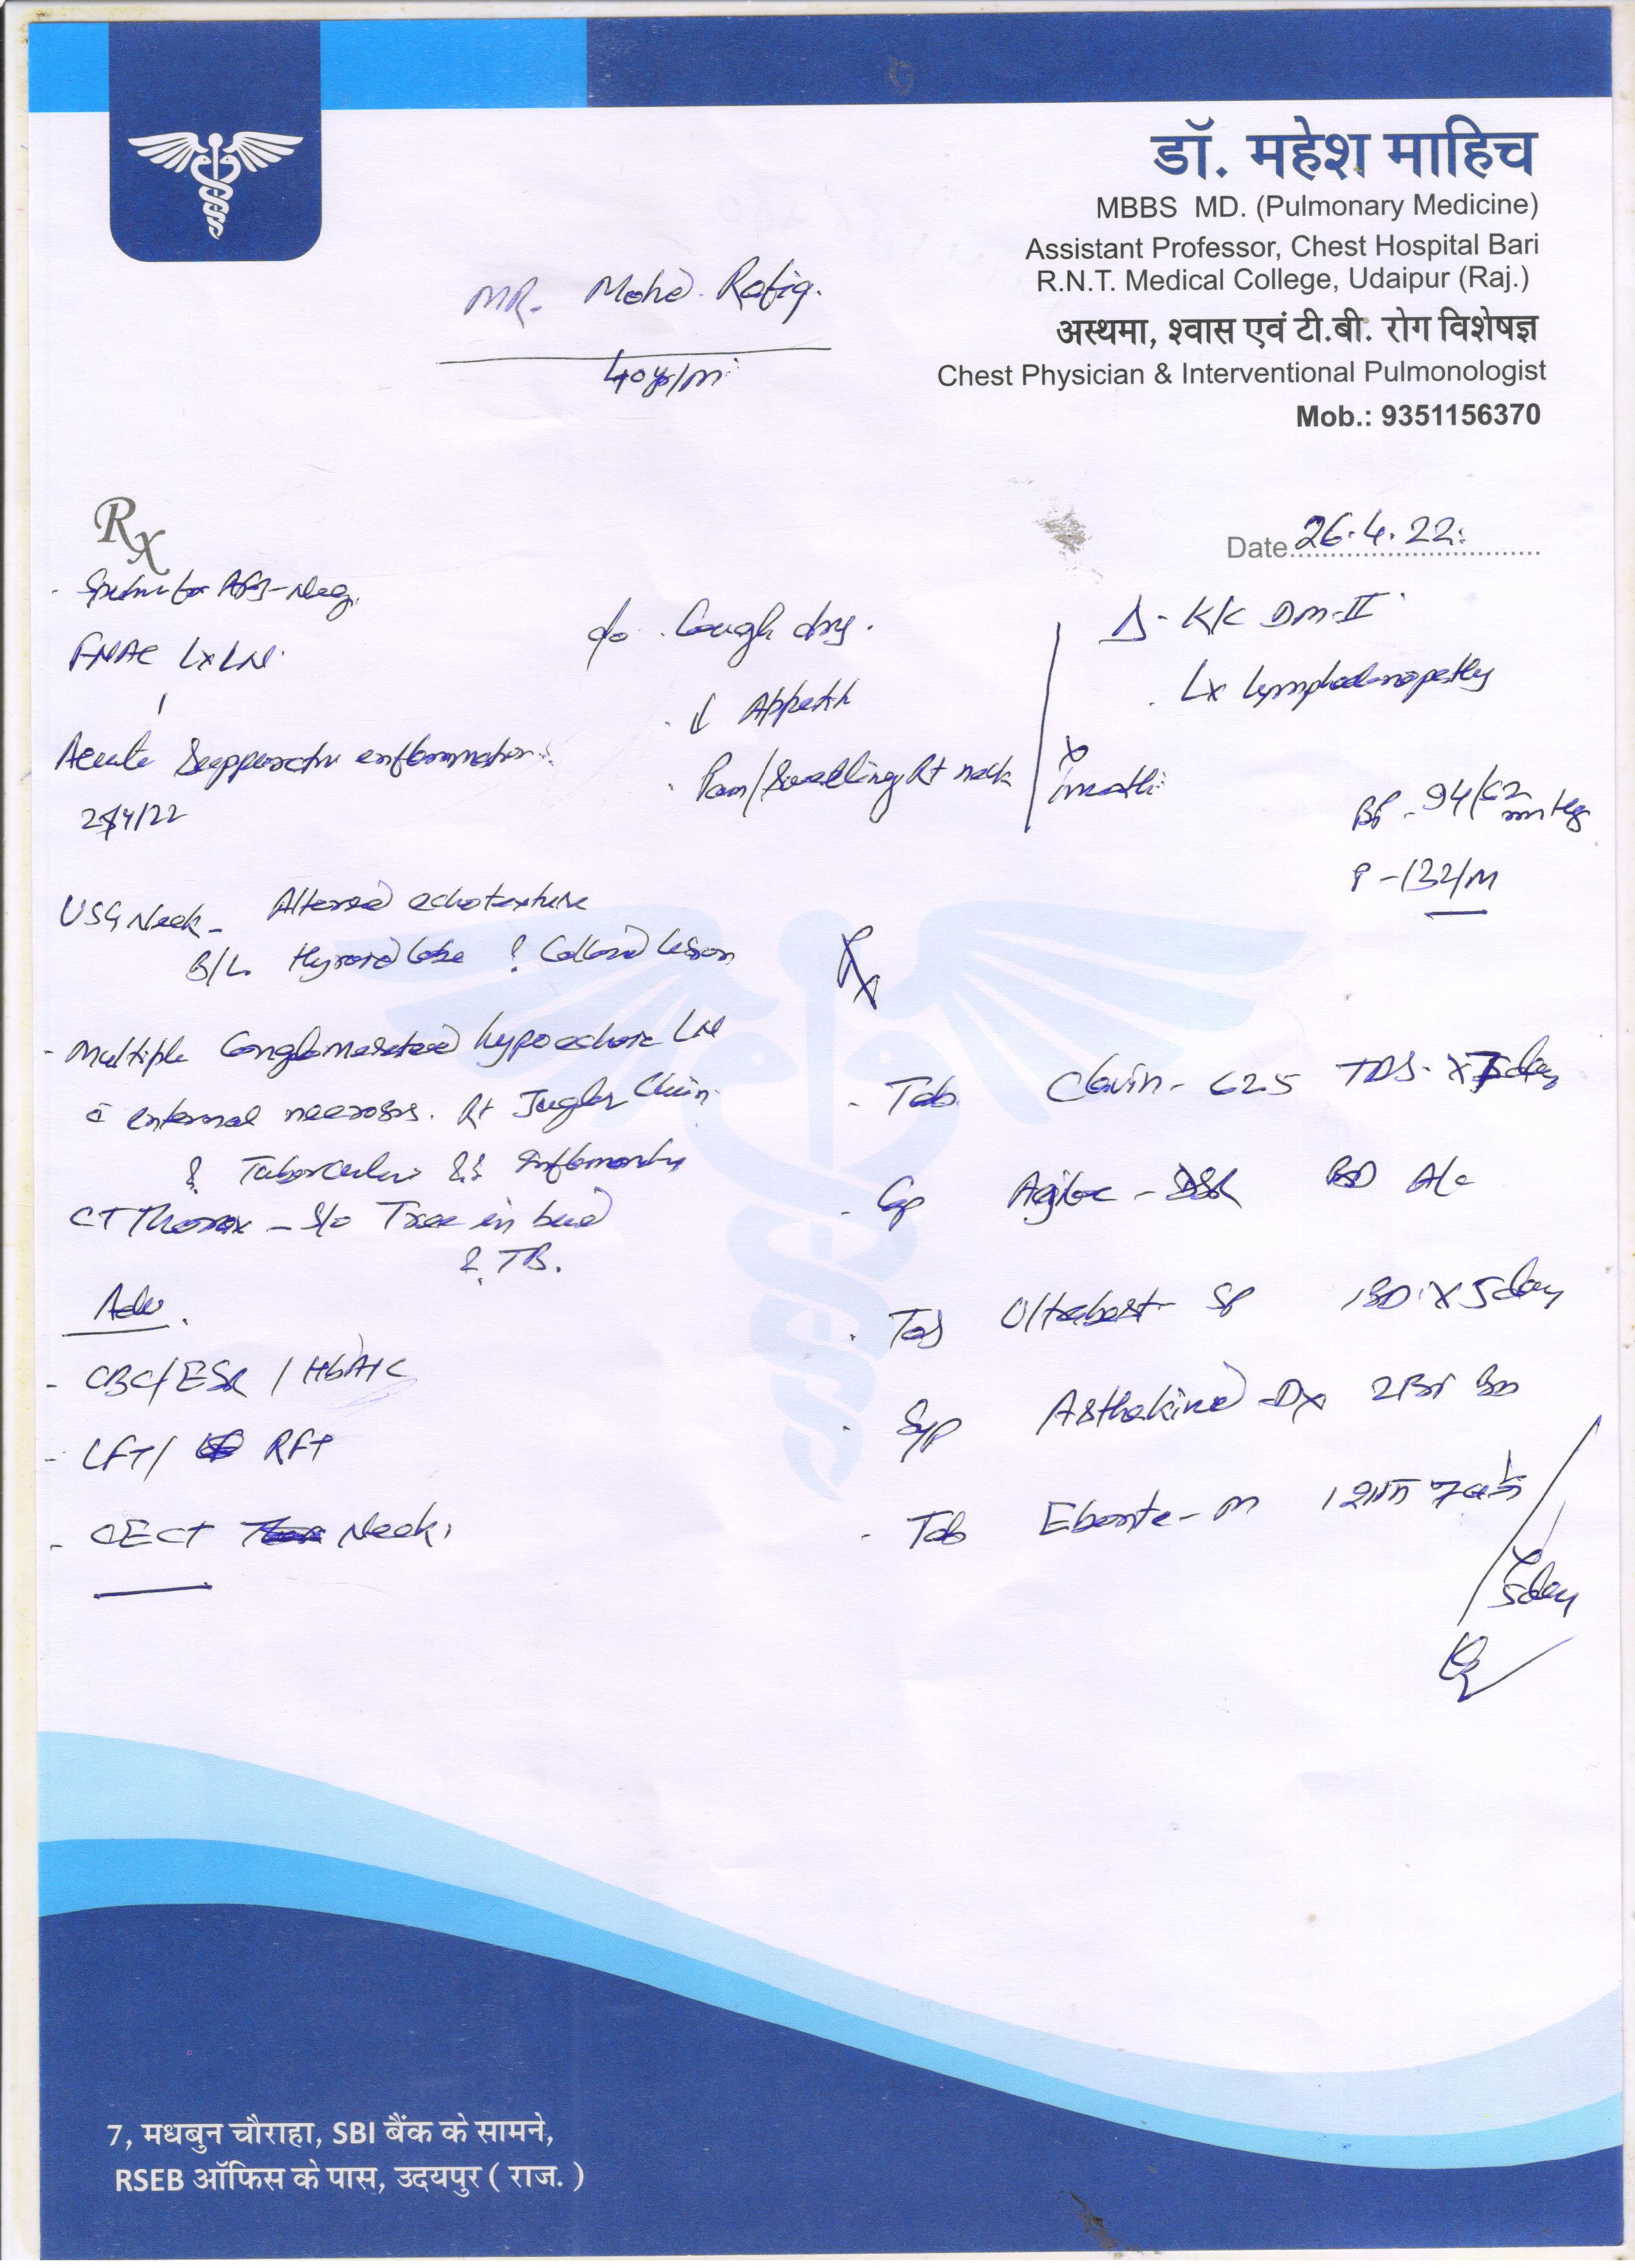 डॉ. महेश माहिच
MBBS MD. (Pulmonary Medicine)
Assistant Professor, Chest Hospital Bari
R.N.T. Medical College, Udaipur (Raj.)
अस्थमा, श्वास एवं टी.बी. रोग विशेषज्ञ
Chest Physician & Interventional Pulmonologist
Mob.: 9351156370
MR. Mohd. Rafiq.
40y/m
Rx
Date 26.4.22
- Sputum for AFB-Neg.
FNAC Lx LN
Acute Suppurative inflammation
/4/22
USG Neck - Altered echotexture
B/L Thyroid lobe ? Colloid lesion
- Multiple Conglomerated hypoechoic LN
c internal necrosis. Rt Jugular Chain
? Tubercular ?? Inflammatory
CT Thorax - S/o Tree in bud
? TB.
Adv.
- CBC/ESR / HbA1C
- LFT/ RFT
- CECT Neck
c/o . Cough dry.
. ↓ Appetite
. Pain/Swelling Rt neck
x 1month
Δ - K/C DM-II
. Lx lymphadenopathy
BP - 94/62 mmHg
P - 132/m
Rx
- Tab Clavin - 625 TDS x 7day
- Cap - DSR BD A/c
. Tab SP BD x 5day
. Syp Asthakind - Dx 2
- Tab Ebaste - M 1
x 5day
7, मधबुन चौराहा, SBI बैंक के सामने,
RSEB ऑफिस के पास, उदयपुर ( राज. )